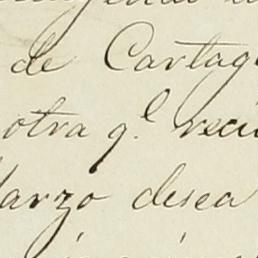 de Cartag
otra q.l reci
Marzo desea